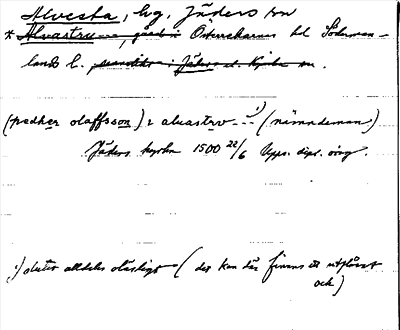 Alvesta, hg, Jäders sn
* Alvastru---, gård i Österrekarne hd Söderman-
lands l. sannolikt i Jäders el. Kjula sn.
(pedher olaffsson) i aluastrv --- 1) (nämndeman)
Jäders kyrka 1500 22/6 Upps. dipl. orig.
1) slutet alldeles oläsligt (det kan där finnas ett utplånat
och)